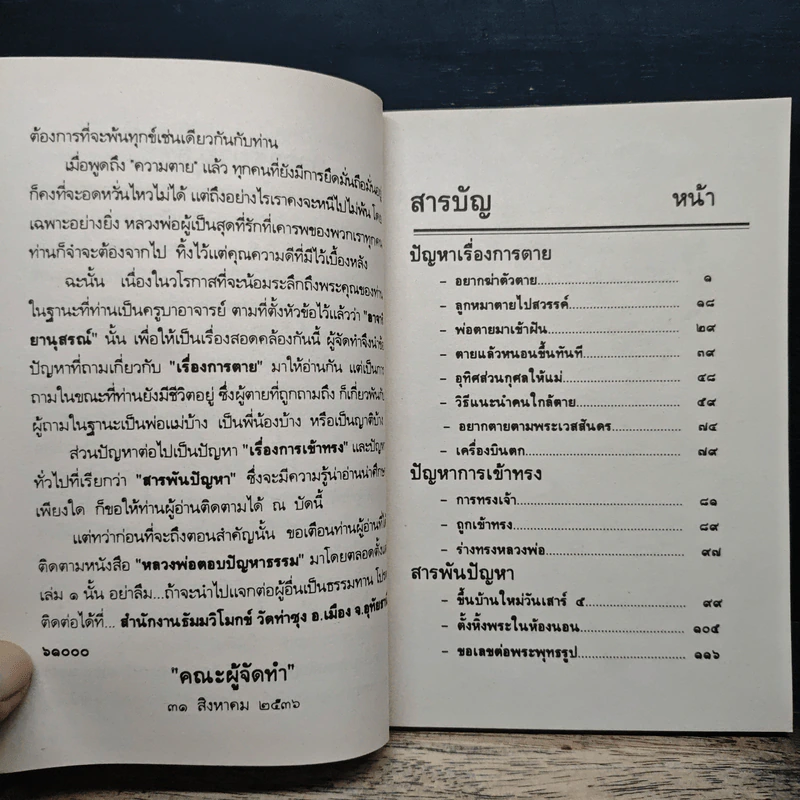 ต้องการที่จะพ้นทุกข์เช่นเดียวกันกับท่าน
เมื่อพูดถึง "ความตาย" แล้ว ทุกคนที่ยังมีการยึดมั่นถือมั่นอยู่
ก็คงที่จะอดหวั่นไหวไม่ได้ แต่ถึงอย่างไรเราคงจะหนีไปไม่พ้น โดย
เฉพาะอย่างยิ่ง หลวงพ่อผู้เป็นสุดที่รักที่เคารพของพวกเราทุกคน
ท่านก็จำจะต้องจากไป ทิ้งไว้แต่คุณความดีที่มีไว้เบื้องหลัง
ฉะนั้น เนื่องในวโรกาสที่จะน้อมระลึกถึงพระคุณของท่าน
ในฐานะที่ท่านเป็นครูบาอาจารย์ ตามที่ตั้งหัวข้อไว้แล้วว่า
ยานุสรณ์" นั้น เพื่อให้เป็นเรื่องสอดคล้องกันนี้ ผู้จัดทำจึงนำ
ปัญหาที่ถามเกี่ยวกับ "เรื่องการตาย" มาให้อ่านกัน แต่เป็นการ
ถามในขณะที่ท่านยังมีชีวิตอยู่ ซึ่งผู้ตายที่ถูกถามถึง ก็เกี่ยวพันกับ
ผู้ถามในฐานะเป็นพ่อแม่บ้าง เป็นพี่น้องบ้าง หรือเป็นญาติบ้าง
ส่วนปัญหาต่อไปเป็นปัญหา "เรื่องการเข้าทรง" และปัญหา
ทั่วไปที่เรียกว่า "สารพันปัญหา" ซึ่งจะมีความรู้น่าอ่านน่าศึกษา
เพียงใด ก็ขอให้ท่านผู้อ่านติดตามได้ ณ บัดนี้
แต่ทว่าก่อนที่จะถึงตอนสำคัญนั้น ขอเตือนท่านผู้อ่านที่ได้
ติดตามหนังสือ "หลวงพ่อตอบปัญหาธรรม" มาโดยตลอดตั้งแต่
เล่ม ๑ นั้น อย่าลืม...ถ้าจะนำไปแจกต่อผู้อื่นเป็นธรรมทาน โปรด
ติดต่อได้ที่... สำนักงานธัมมวิโมกข์ วัดท่าซุง อ.เมือง จ.อุทัยธานี
๖๑๐๐๐
"คณะผู้จัดทำ"
๓๑ สิงหาคม ๒๕๓๖
สารบัญ หน้า
ปัญหาเรื่องการตาย
- อยากฆ่าตัวตาย ๑
- ลูกหมาตายไปสวรรค์ ๑๘
- พ่อตายมาเข้าฝัน ๒๙
- ตายแล้วหนอนขึ้นทันที ๓๙
- อุทิศส่วนกุศลให้แม่ ๔๘
- วิธีแนะนำคนใกล้ตาย ๕๙
- อยากตายตามพระเวสสันดร ๗๔
- เครื่องบินตก ๗๙
ปัญหาการเข้าทรง
- การทรงเจ้า ๘๑
- ถูกเข้าทรง ๘๙
- ร่างทรงหลวงพ่อ ๙๗
สารพันปัญหา
- ขึ้นบ้านใหม่วันเสาร์ ๕ ๙๙
- ตั้งหิ้งพระในห้องนอน ๑๐๕
- ขอเลขต่อพระพุทธรูป ๑๑๖